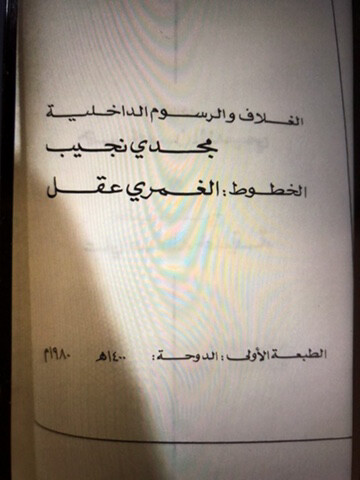 الغلاف والرسوم الداخلية
مجدي نجيب
الخطوط: الغمري عقل
الطبعة الأولى: الدوحة: ١٤٠٠هـ ١٩٨٠م